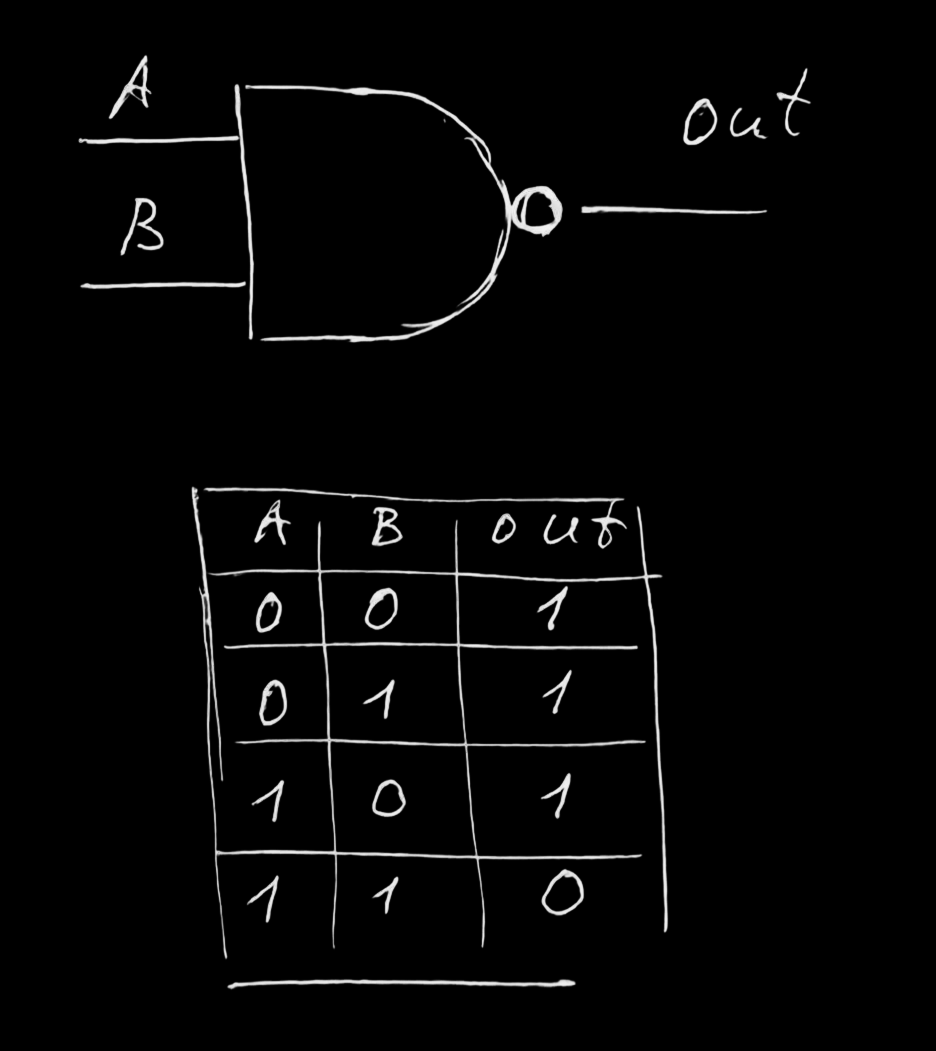 A
out
B
A B out
0 0 1
0 1 1
1 0 1
1 1 0